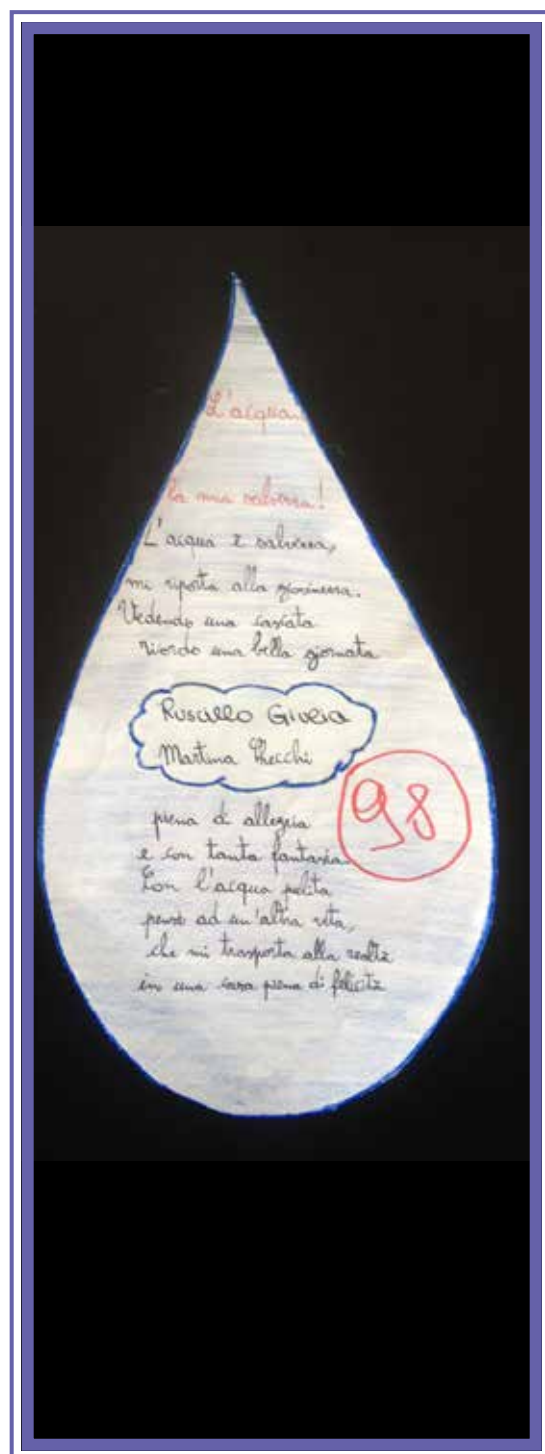 L'acqua...
la mia salvezza!
L'acqua è salvezza,
mi riporta alla giovinezza.
Vedendo una cascata
ricordo una bella giornata
Ruscello Giulia
Martina Checchi
piena di allegria
e con tanta fantasia.
Con l'acqua pulita
penso ad un'altra vita,
che mi trasporta alla realtà
in una casa piena di felicità
98